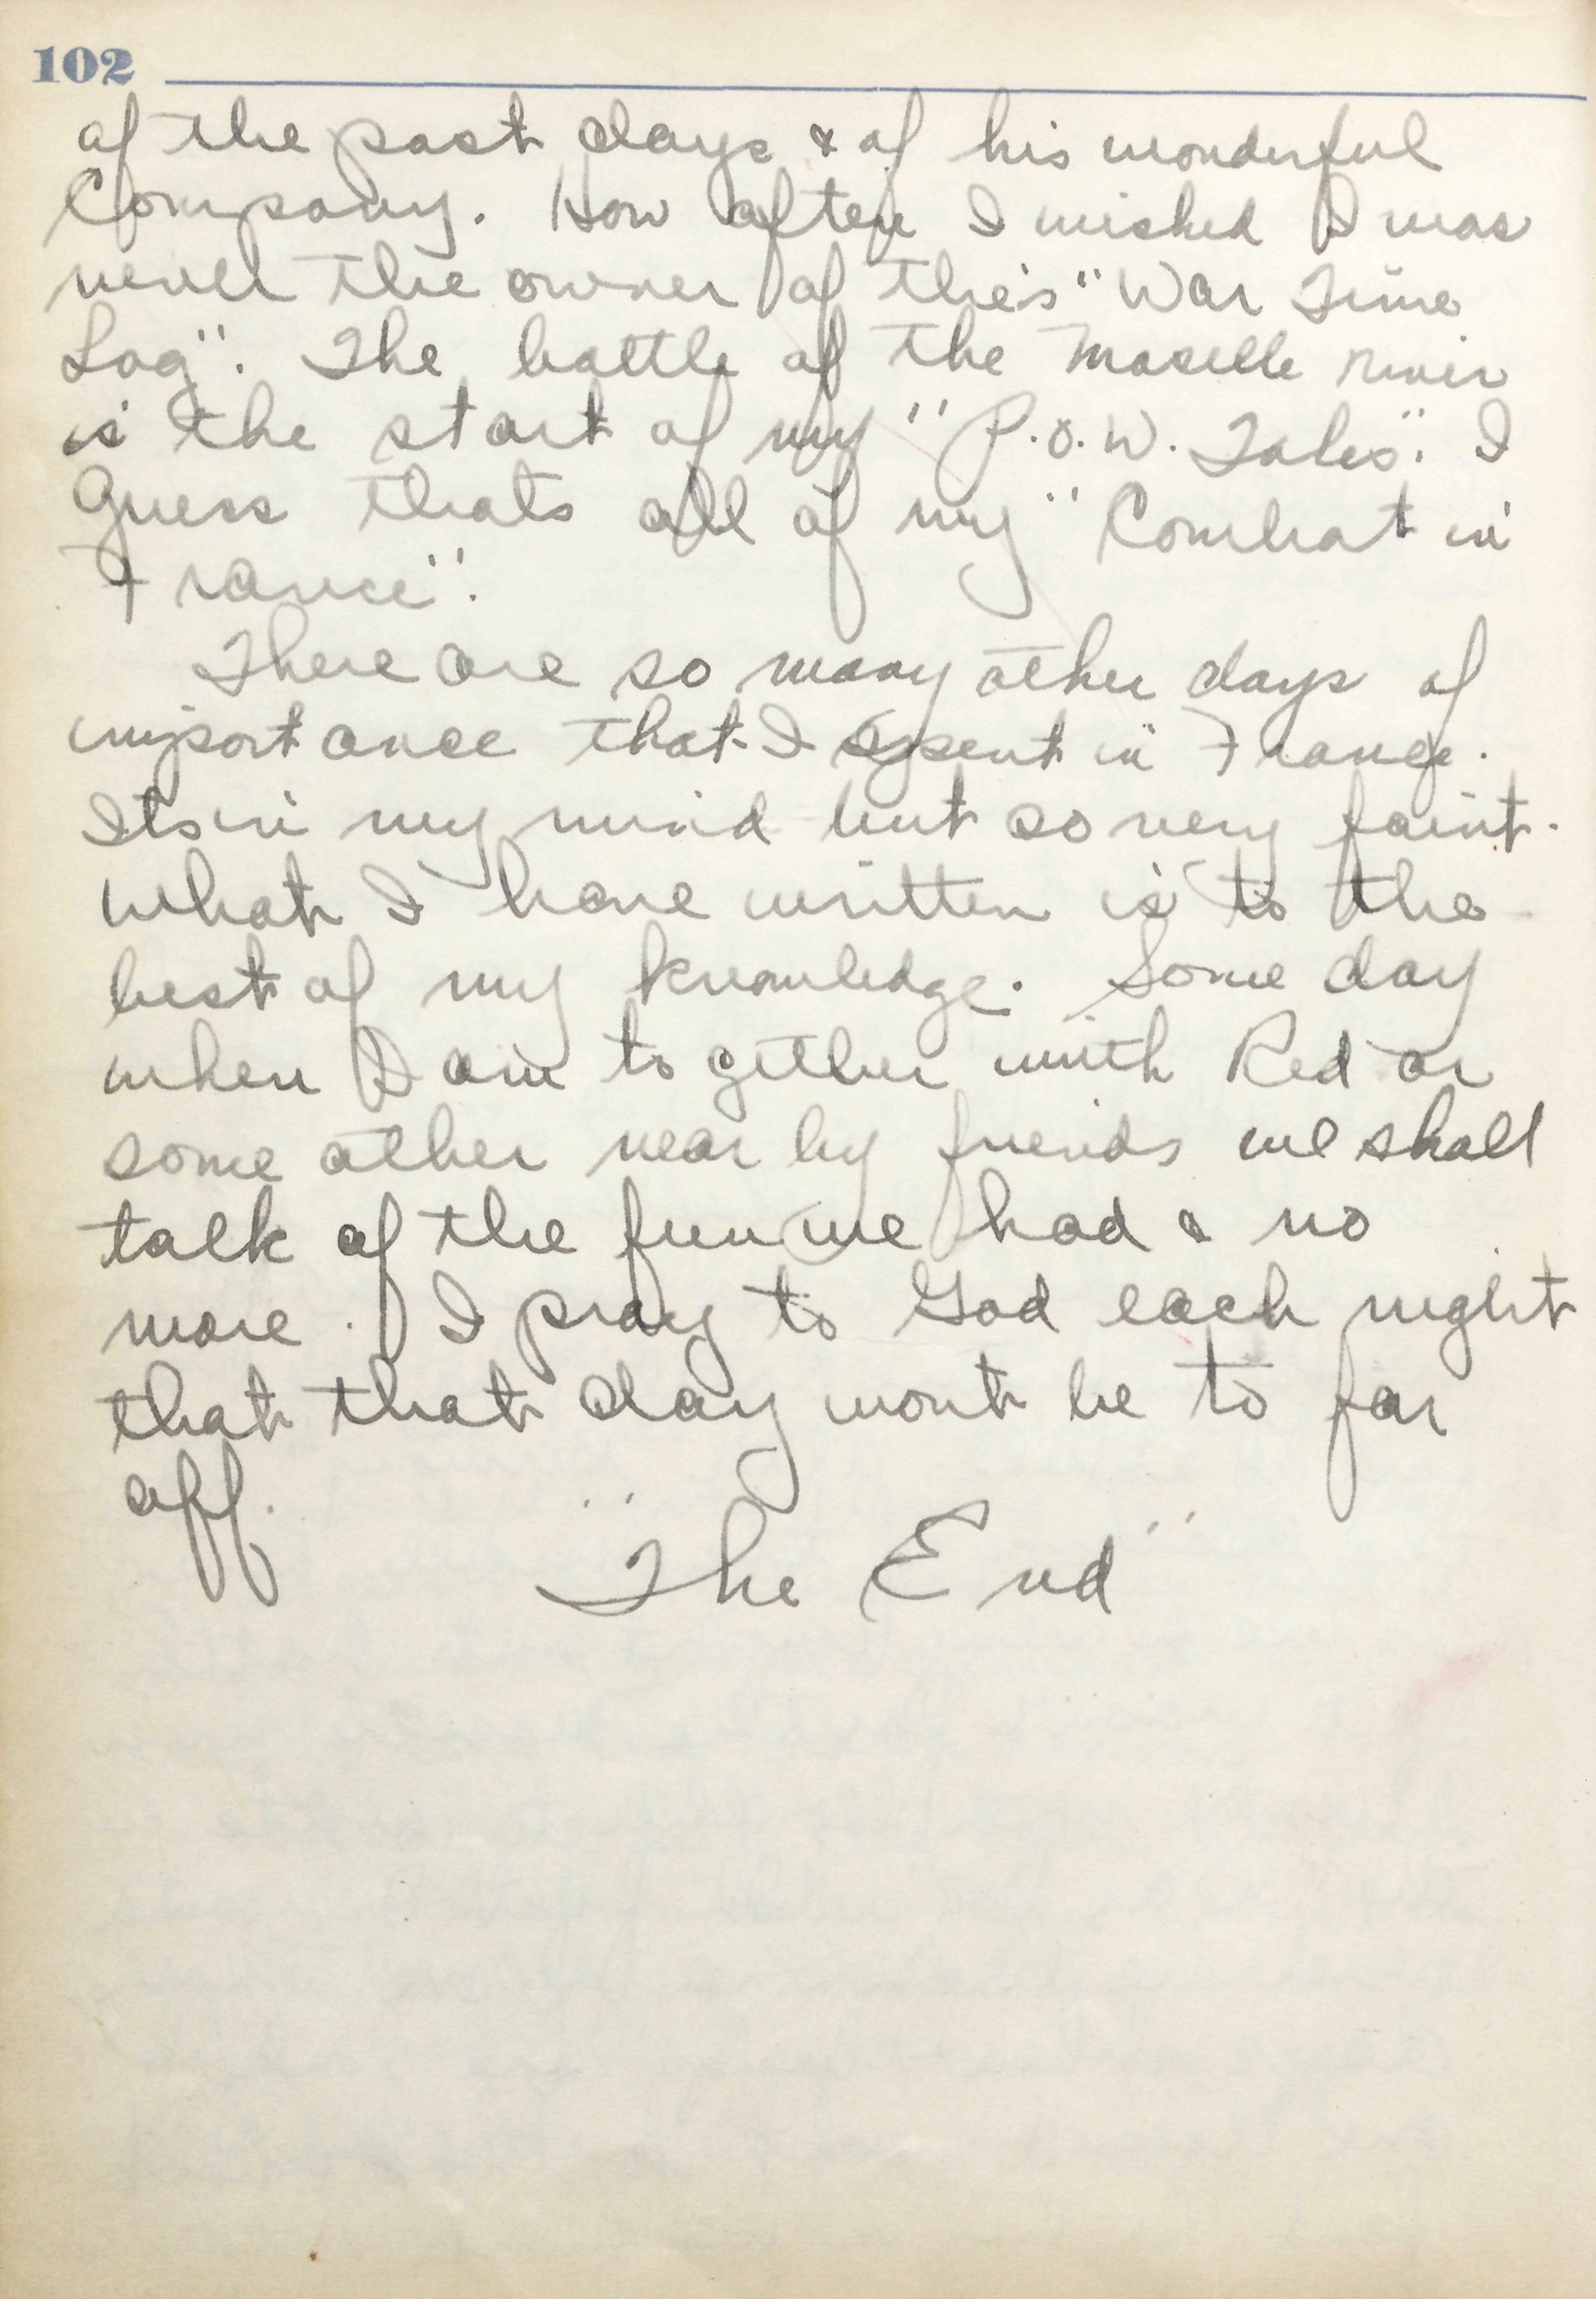 102
of the past days & of his wonderful
Company. How often I wished I was
never the owner of this "War Time
Log". The battle of the Moselle River
is the start of my "P.O.W. Tales". I
Guess thats all of my "Combat in
France".
There are so many other days of
importance that I spent in France.
Its in my mind but so very faint.
What I have written is to the
best of my knowledge. Some day
when I am together with Red or
some other near by friends we shall
talk of the fun we had & no
more. I pray to God each night
that that day wont be to far
off.
"The End"